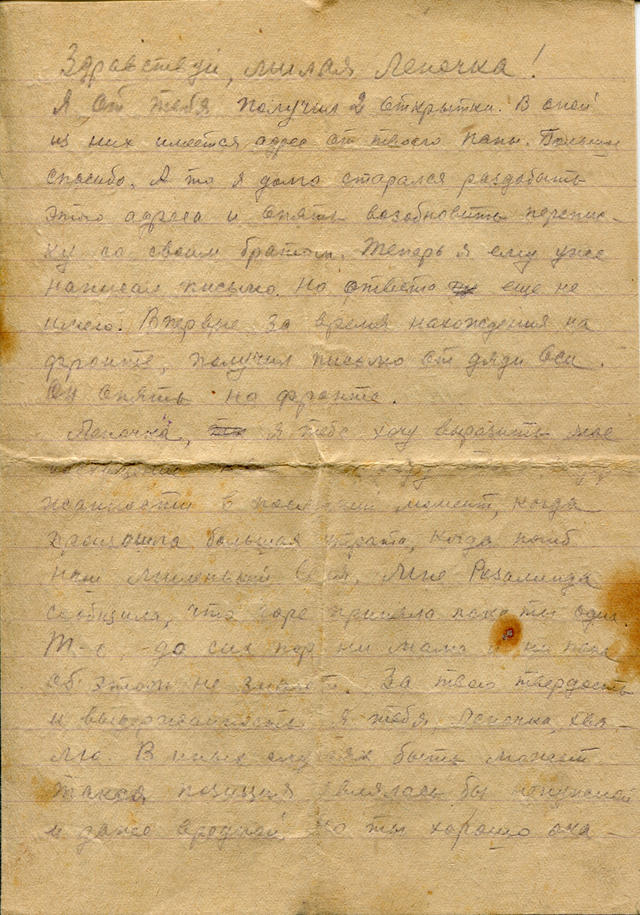 Здравствуй, милая Леночка!
Я от тебя получил 2 открытки. В одной
из них имеется адрес от твоего папы. Большое
спасибо. А то я долго старался раздобыть
этого адреса и опять возобновить перепис-
ку со своим братом. Теперь я ему уже
написал письмо. Но ответа еще не
имею. Впервые за время нахождения на
фронте, получил письмо от дяди Оси.
Он опять на фронте.
Леночка, я тебе хочу выразить мое
в последний момент, когда
произошла большая утрата, когда погиб
наш миленький Мне Розалинда
сообщила, что горе приняла пока ты одна.
Т-е, -до сих пор ни мама и ни папа
об этом не знают. За твою твердость
и выдержанность я тебя, Леночка, хва-
лю. В иных случаях быть может
такая позиция являлась бы ненужной
и даже вредной но ты хорошо